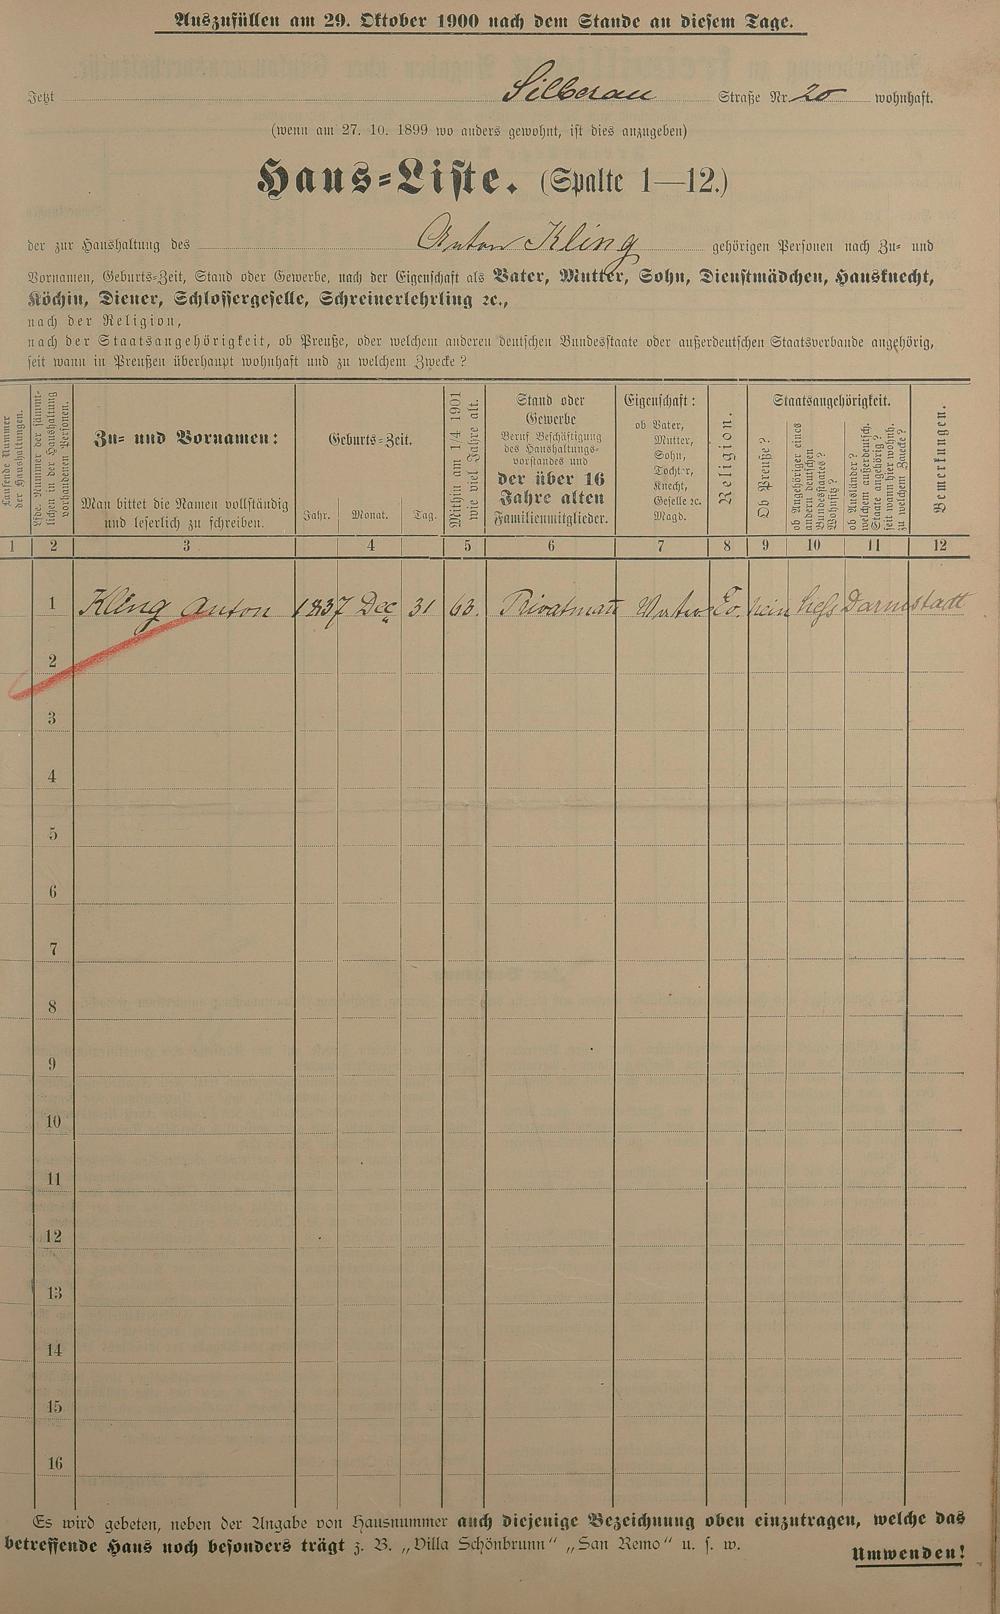 Auszufüllen am 29. Oktober 1900 nach dem Stande an diesem Tage.
Jetzt Silberau Straße Nr. 20 wohnhaft.
(wenn am 27. 10. 1899 wo anders gewohnt, ist dies anzugeben)
Haus=Liste. (Spalte 1—12.)
der zur Haushaltung des Anton Kling gehörigen Personen nach Zu= und
Vornamen, Geburts=Zeit, Stand oder Gewerbe, nach der Eigenschaft als Vater, Mutter, Sohn, Dienstmädchen, Hausknecht,
Köchin, Diener, Schlossergeselle, Schreinerlehrling ꝛc.,
nach der Religion,
nach der Staatsangehörigkeit, ob Preuße, oder welchem anderen deutschen Bundesstaate oder außerdeutschen Staatsverbande angehörig,
seit wann in Preußen überhaupt wohnhaft und zu welchem Zwecke?
Laufende Nummer
der Haushaltungen.
Lfde. Nummer der sämmt=
lichen in der Haushaltung
vorhandenen Personen.
Zu= und Vornamen:
Man bittet die Namen vollständig
und leserlich zu schreiben.
Geburts=Zeit.
Jahr. Monat. Tag.
Mithin am 1/4 1901
wie viel Jahre alt.
Stand oder
Gewerbe
Beruf Beschäftigung
des Haushaltungs=
vorstandes und
der über 16
Jahre alten
Familienmitglieder.
Eigenschaft:
ob Vater,
Mutter,
Sohn,
Tochter,
Knecht,
Geselle ꝛc.
Magd.
Religion.
Staatsangehörigkeit.
Ob Preuße?
ob Angehöriger eines
andern deutschen
Bundesstaates?
Wohnsitz?
ob Ausländer?
welchem außerdeutsch.
Staate angehörig?
seit wann hier wohnh.
zu welchem Zwecke?
Bemerkungen.
1 2 3 4 5 6 7 8 9 10 11 12
1 Kling Anton 1837 Dec 31 63. Privatmann Ev. nein hess Darmstadt
2
3
4
5
6
7
8
9
10
11
12
13
14
15
16
Es wird gebeten, neben der Angabe von Hausnummer auch diejenige Bezeichnung oben einzutragen, welche das
betreffende Haus noch besonders trägt z. B. „Villa Schönbrunn" „San Remo" u. s. w.
Umwenden!